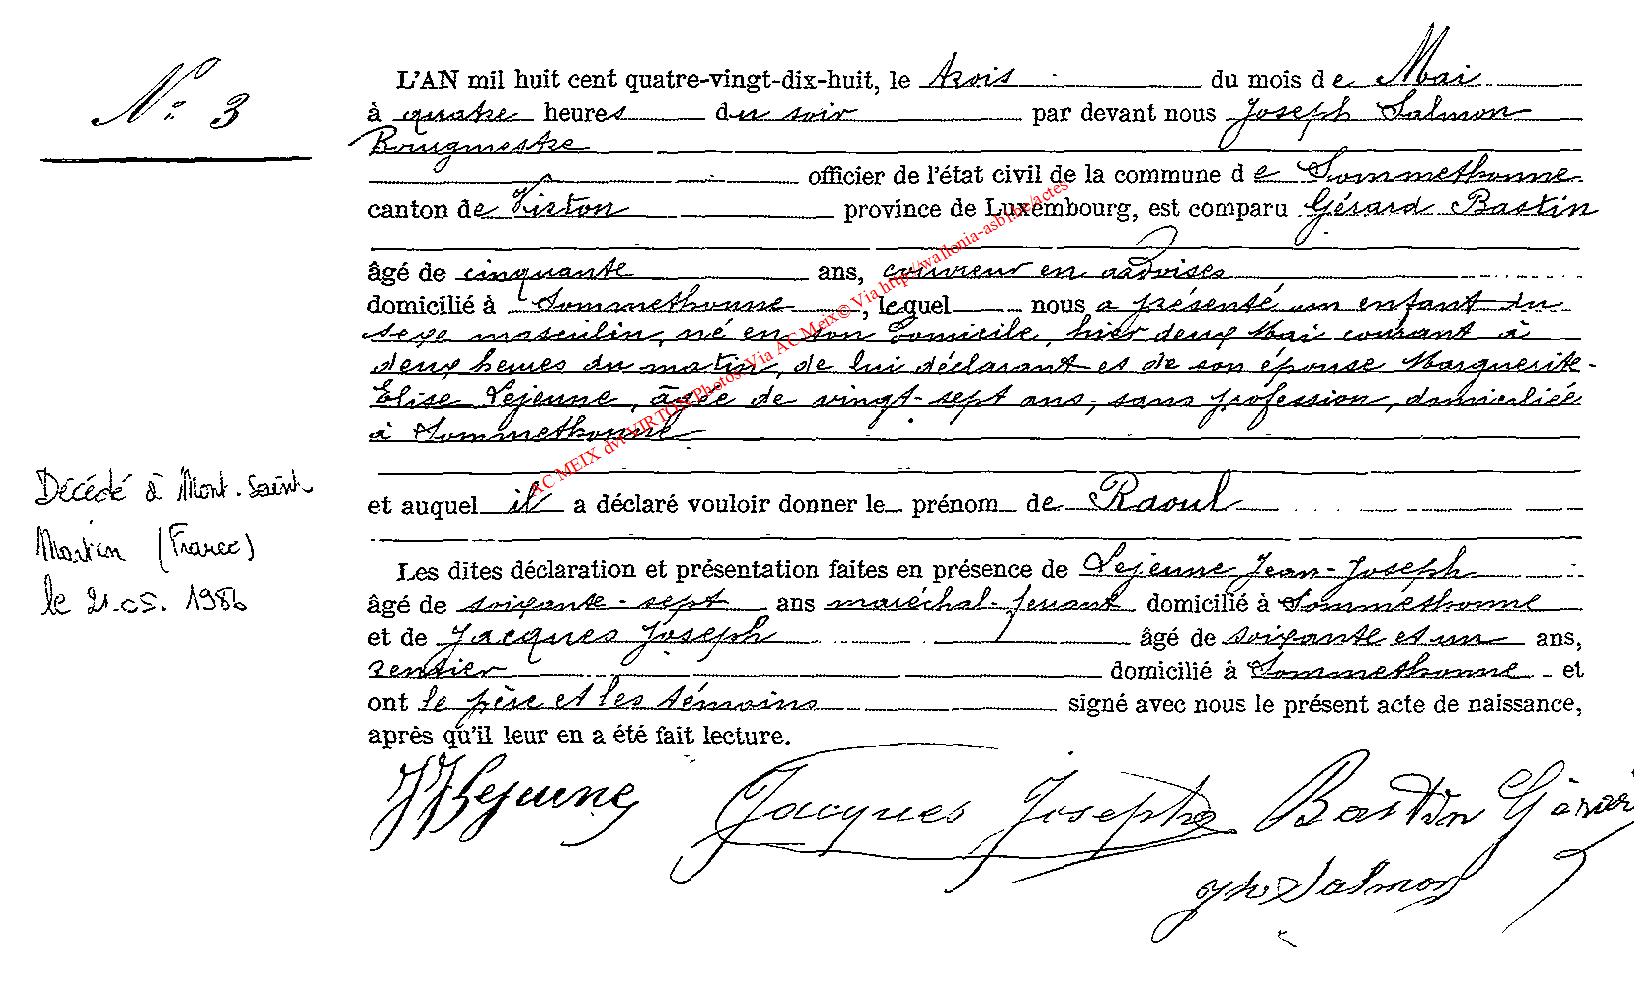 N° 3
L'AN mil huit cent quatre-vingt-dix-huit, le trois du mois de Mai
à quatre heures du soir par devant nous Joseph Salmon
Bourgmestre
officier de l'état civil de la commune de Sommethonne
canton de Virton province de Luxembourg, est comparu Gérard Bastin
âgé de cinquante ans, couvreur en ardoises
domicilié à Sommethonne, lequel nous a présenté un enfant du
sexe masculin, né en son domicile, hier deux Mai courant à
deux heures du matin, de lui déclarant et de son épouse Marguerite-
Elise Lejeune, âgée de vingt-sept ans, sans profession, domiciliée
à Sommethonne
et auquel il a déclaré vouloir donner le prénom de Raoul
Les dites déclaration et présentation faites en présence de Lejeune Jean-Joseph
âgé de soixante-sept ans maréchal-ferrant domicilié à Sommethonne
et de Jacques Joseph âgé de soixante et un ans,
rentier domicilié à Sommethonne et
ont le père et les témoins signé avec nous le présent acte de naissance,
après qu'il leur en a été fait lecture.
JJLejeune Jacques Joseph Bastin Gérard
Jph Salmon
Décédé à Mont-Saint-
Martin (France)
le 21.05.1986
AC MEIX dvt VIRTON Photos Via AC Meix© Via http://wallonia-asbl.be/actes